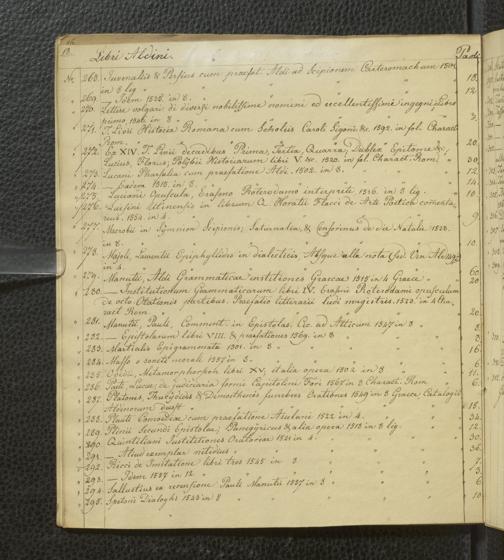 12. Libri Aldini. Paoli
Nr. 268. Juvenalis & Persius cum praefat. Aldi ad Scipionem Carteromachum 1501 18.
in 8 lig. 12
269. — Idem 1535. in 8.
270. Lettere volgari di diversi nobilissimi uomini ed eccellentissimi ingegni, Libro
primo 1546. in 8 3.
271. T. Livii Historia Romana cum Scholiis Caroli Sigonii &c. 1592. in fol. Charact.
Rom. 20
272. Ex XIV. T. Livii decadibus Prima, Tertia, Quarta, Duplex Epitome &c.
Lucius Florus, Polybii Historiarum libri V. &c. 1520. in fol. Charact. Rom. 30
273. Lucani Pharsalia cum praefatione Aldi. 1502. in 8. 12
274. — Eadem 1515. in 8. 14
275. Luciani Opuscula, Erasmo Roterodamo interprete 1516. in 8 lig. 10
276. Luisini Utinensis in librum Q. Horatii Flacci de Arte Poetica commenta-
rius. 1554. in 4. 9.
277. Macrobii in Somnium Scipionis, Saturnalia, & Censorinus de die Natali 1528.
in 8. 10
278. Majoli, Laurentii Epiphyllides in dialecticis Absque alla nota
in 4.
279. Manutii, Aldi Grammaticae institutiones Graecae 1515 in 4 Graece 60
280. — Institutionum Grammaticarum libri IV. Erasmi Roterodami opusculum
de octo Orationis partibus. Praefatio litterarii ludi magistris. 1523. in 4 Cha-
ract Rom. 20
281. Manutii, Pauli, Comment. in Epistolas Cic. ad Atticum 1547 in 8
282. — Epistolarum libri VIII. & praefationes 1569. in 8 3
283. Martialis Epigrammata 1501. in 8 16
284. Massa o societé morale 1557 in 8. 6
285. Ovidii Metamorphoseon libri XV, et alia opera 1502 in 8 11.
286. Pasti, Lucae, de judiciaria formio Capitolini Fori 1567 in 8 Charact. Rom 6.
287. Platonis, Thucydidis & Demosthenis funebres Orationes 1549 in 8 Graece
15.
288. Plauti Comoediae cum praefatione Asulani 1522 in 4. 24
289. Plinii Secundi Epistolae, Panegyricus & alia opera 1518 in 8 lig. 12.
290. Quintiliani Institutiones Oratoriae 1521 in 4 30.
291. — Aliud exemplar nitidius 36.
292. Ricci de Imitatione libri tres 1545 in 8 7
293. — Idem 1557 in 12 3.
294. Sallustius ex recensione Pauli Manutii 1557 in 8 6
295. Speroni Dialoghi 1543 in 8 10